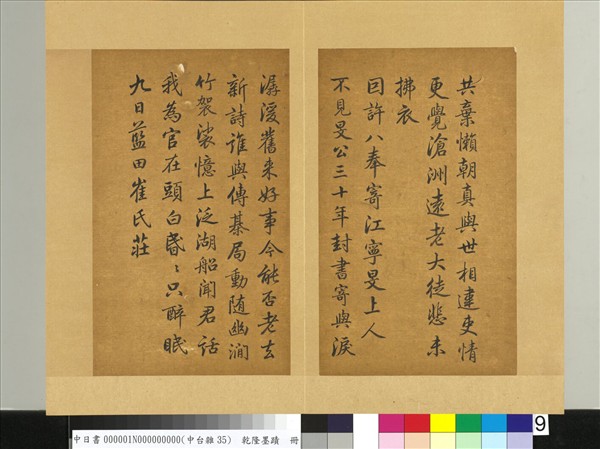 共棄懶朝真與世相違吏情
更覺滄洲遠老大徒悲未
拂衣
因許八奉寄江寧旻上人
不見旻公三十年封書寄與淚
潺湲舊来好事今能否老去
新詩誰與傳棊局動随幽澗
竹袈裟憶上泛湖船聞君話
我為官在頭白昏〻只醉眠
九日藍田崔氏莊
9
中日書 000001N000000000(中台雜 35) 乾隆墨蹟 冊